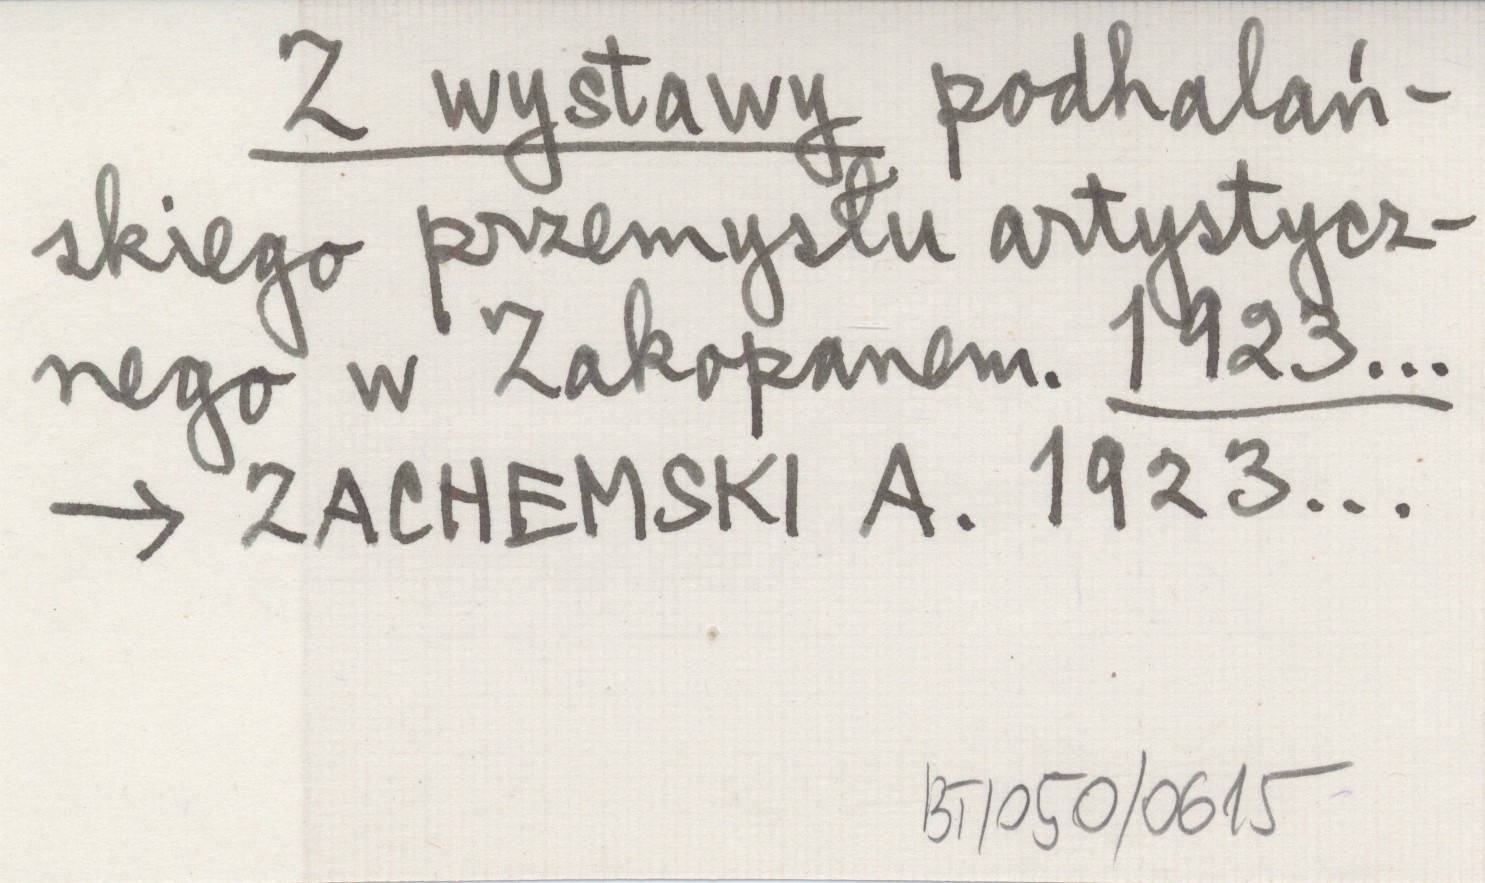 Z wystawy podhalań-
skiego przemysłu artystycz-
nego w Zakopanem. 1923...
→ ZACHEMSKI A. 1923...
BT/050/0615